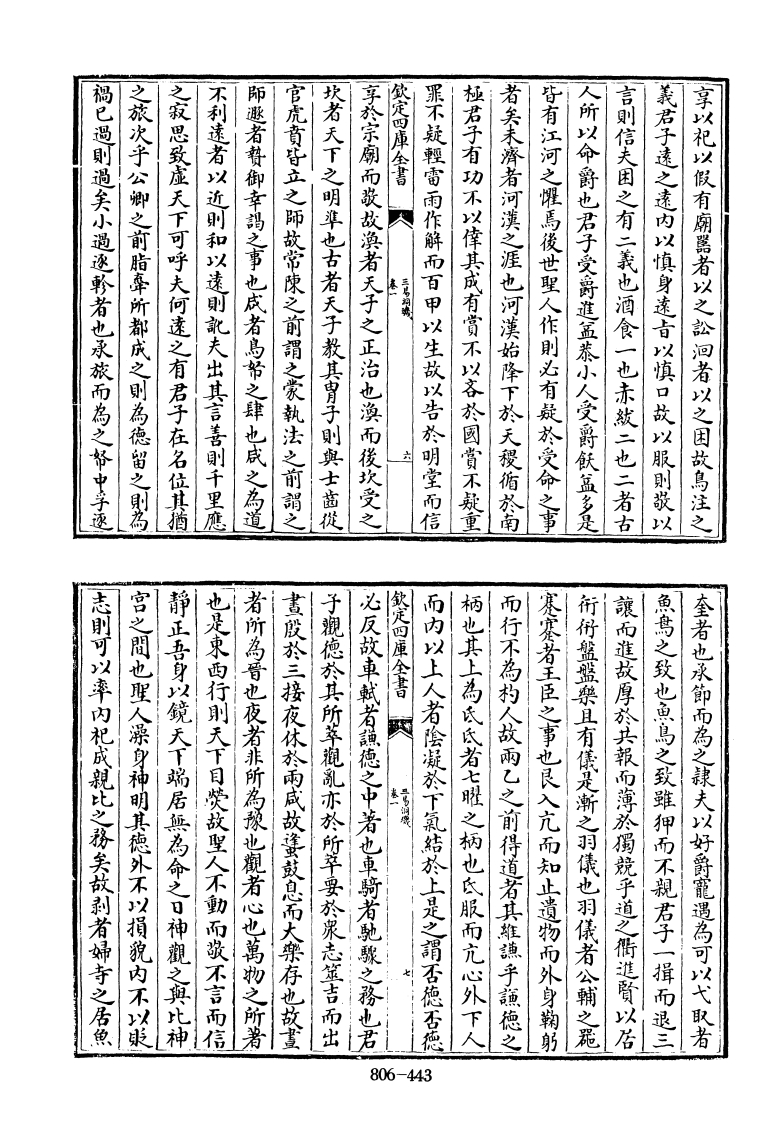 享以祀以假有廟噐者以之訟洄者以之困故鳥注之
義君子遠之遠内以慎身遠言以慎口故以服則敬以
言則信夫困之有二義也酒食一也赤紱二也二者古
人所以命爵也君子受爵進益恭小人受爵飫益多是
皆有江河之懼焉後世聖人作則必有疑於受命之事
者矣未濟者河漢之涯也河漢始降下於天稷循於南
極君子有功不以倖其成有賞不以吝於國賞不疑重
罪不疑輕雷雨作解而百甲以生故以告於明堂而信
欽定四庫全書
三易洞璣
卷一
六
享於宗廟而敬故渙者天子之正治也渙而後坎受之
坎者天下之明準也古者天子教其胄子則與士齒從
官虎賁皆立之師故常陳之前謂之蒙執法之前謂之
師遯者贄御幸謁之事也咸者鳥帑之肆也咸之為道
不利遠者以近則和以遠則訛夫出其言善則千里應
之寂思致虛天下可呼夫何遠之有君子在名位其猶
之旅次乎公卿之前脂牽所都成之則為德留之則為
禍已過則過矣小過逐軫者也承旅而為之帑中孚逐
奎者也承節而為之隷夫以好爵寵遇為可以弋取者
魚鳥之致也魚鳥之致雖狎而不親君子一揖而退三
讓而進故厚於共報而薄於獨競乎道之衢進賢以居
衎衎盤盤樂且有儀是漸之羽儀也羽儀者公輔之器
蹇蹇者王臣之事也艮入亢而知止遺物而外身鞠躬
而行不為杓人故兩乙之前得道者其維謙乎謙德之
柄也其上為氐氐者七曜之柄也氐服而亢心外下人
而内以上人者陰凝於下氣結於上是之謂否德否德
欽定四庫全書
三易洞璣
卷一
七
必反故車軾者謙德之中著也車騎者馳驟之務也君
子觀德於其所萃觀亂亦於所萃要於衆志筮吉而出
晝殷於三接夜休於兩咸故蚤鼓息而大樂存也故晝
者所為晉也夜者非所為豫也觀者心也萬物之所著
也是東西行則天下目熒故聖人不動而敬不言而信
靜正吾身以鏡天下端居無為命之曰神觀之與比神
宫之間也聖人澡身神明其德外不以損貌内不以貶
志則可以率内祀成親比之務矣故剥者婦寺之居魚
806-443